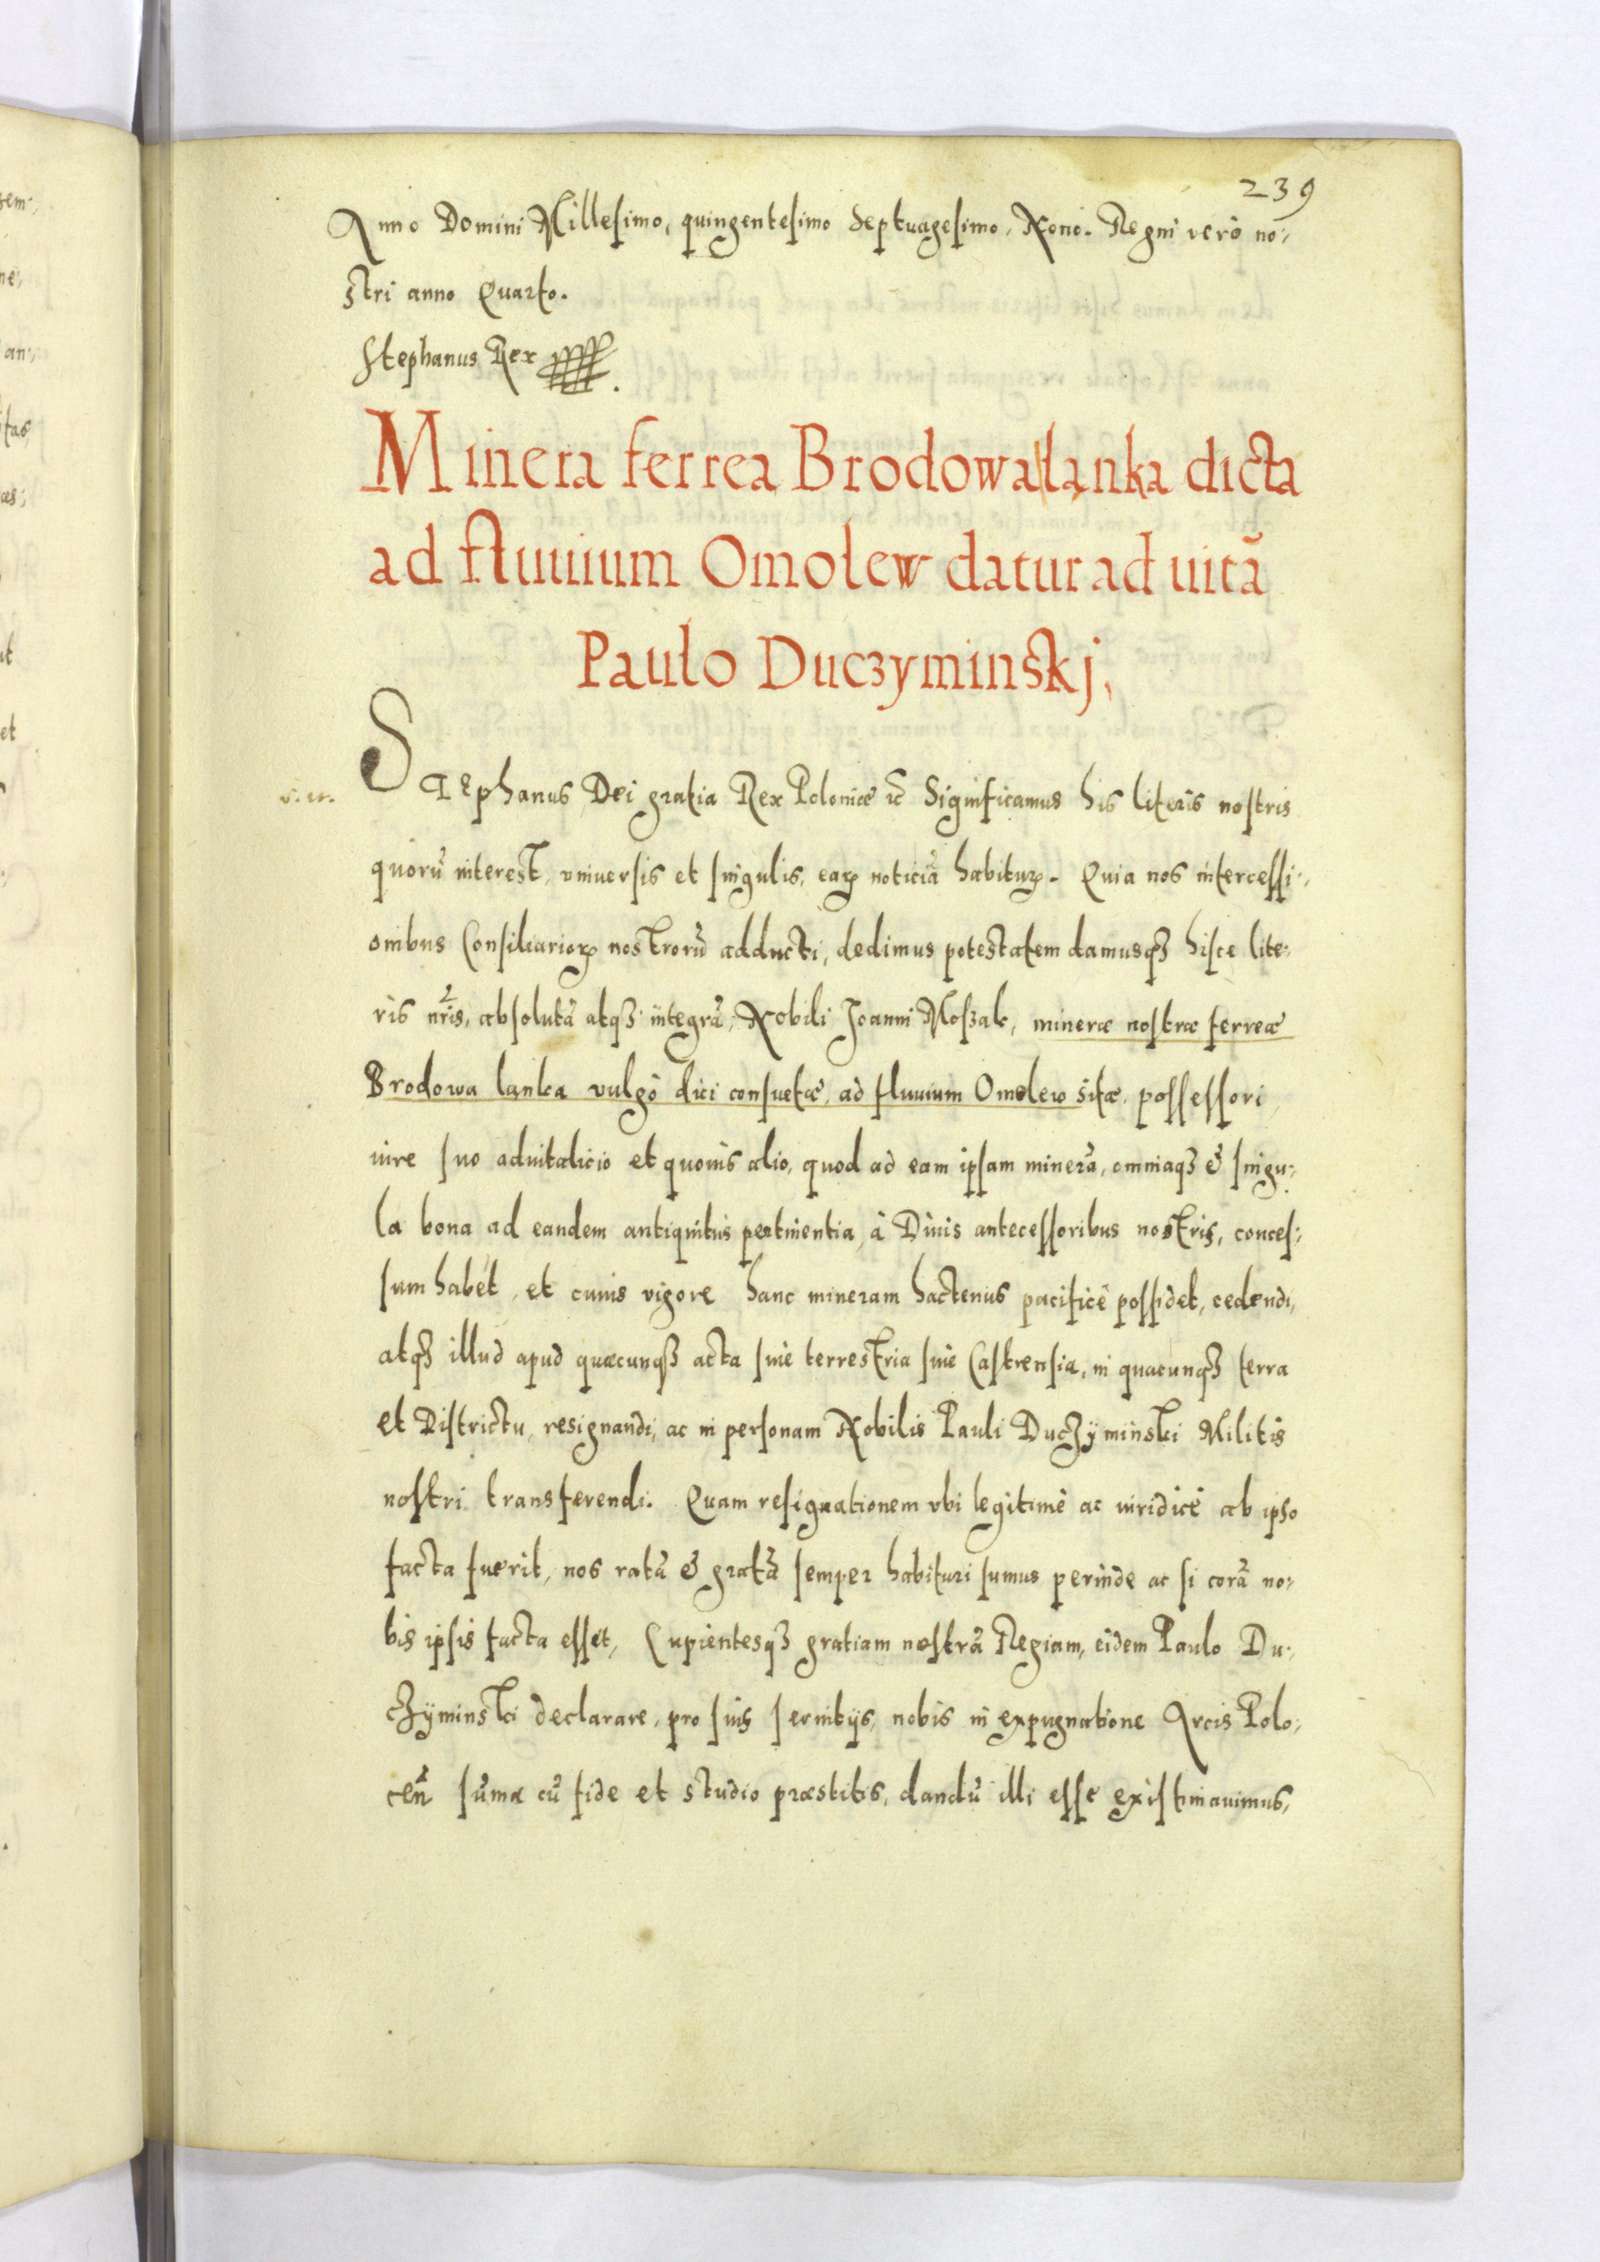 239
Anno Domini Millesimo, quingentesimo Septuagesimo, Nono. Regni verò no-
stri anno Quarto.
Stephanus Rex
Minera ferrea Brodowa łąnka dicta
ad fluuium Omolew datur ad uitã
Paulo Duczyminskj,
v. m.
Stephanus Dei gratia Rex Poloniæ etc̃ Significamus his literis nostris
quorũ interest, vniuersis et singulis, earꝝ noticiã habiturꝝ. Quia nos intercessi-
onibus Consiliariorꝝ nostrorũ adducti, dedimus potestatem damusqꝫ hisce lite-
ris nr̃is, absolutã atqꝫ integrã, Nobili Joanni Moszak, mineræ nostræ ferreæ
Brodowa lanka vulgò dici consuetæ, ad fluuium Omolew sitæ, possessori,
iure suo aduitalicio et quouis alio, quod ad eam ipsam minerã, omniaqꝫ & singu-
la bona ad eandem antiquitus pertinentia, à Diuis antecessoribus nostris, conces-
sum habet, et cuius vigore hanc mineram hactenus pacificè possidet, cedendi,
atqꝫ illud apud quæcunqꝫ acta siue terrestria siue Castrensia, in quacunqꝫ terra
et Districtu, resignandi, ac in personam Nobilis Pauli Duczÿminski Militis
nostri transferendi. Quam resignationem vbi legitimè ac iuridicè ab ipso
facta fuerit, nos ratã & gratã semper habituri sumus perinde ac si corã no-
bis ipsis facta esset, Cupientesqꝫ gratiam nostrã Regiam, eidem Paulo Du-
czÿminski declarare, pro suis seruitijs, nobis in expugnatione Arcis Polo-
ceñ sũma cũ fide et studio præstitis, dandũ illi esse existimauimus,